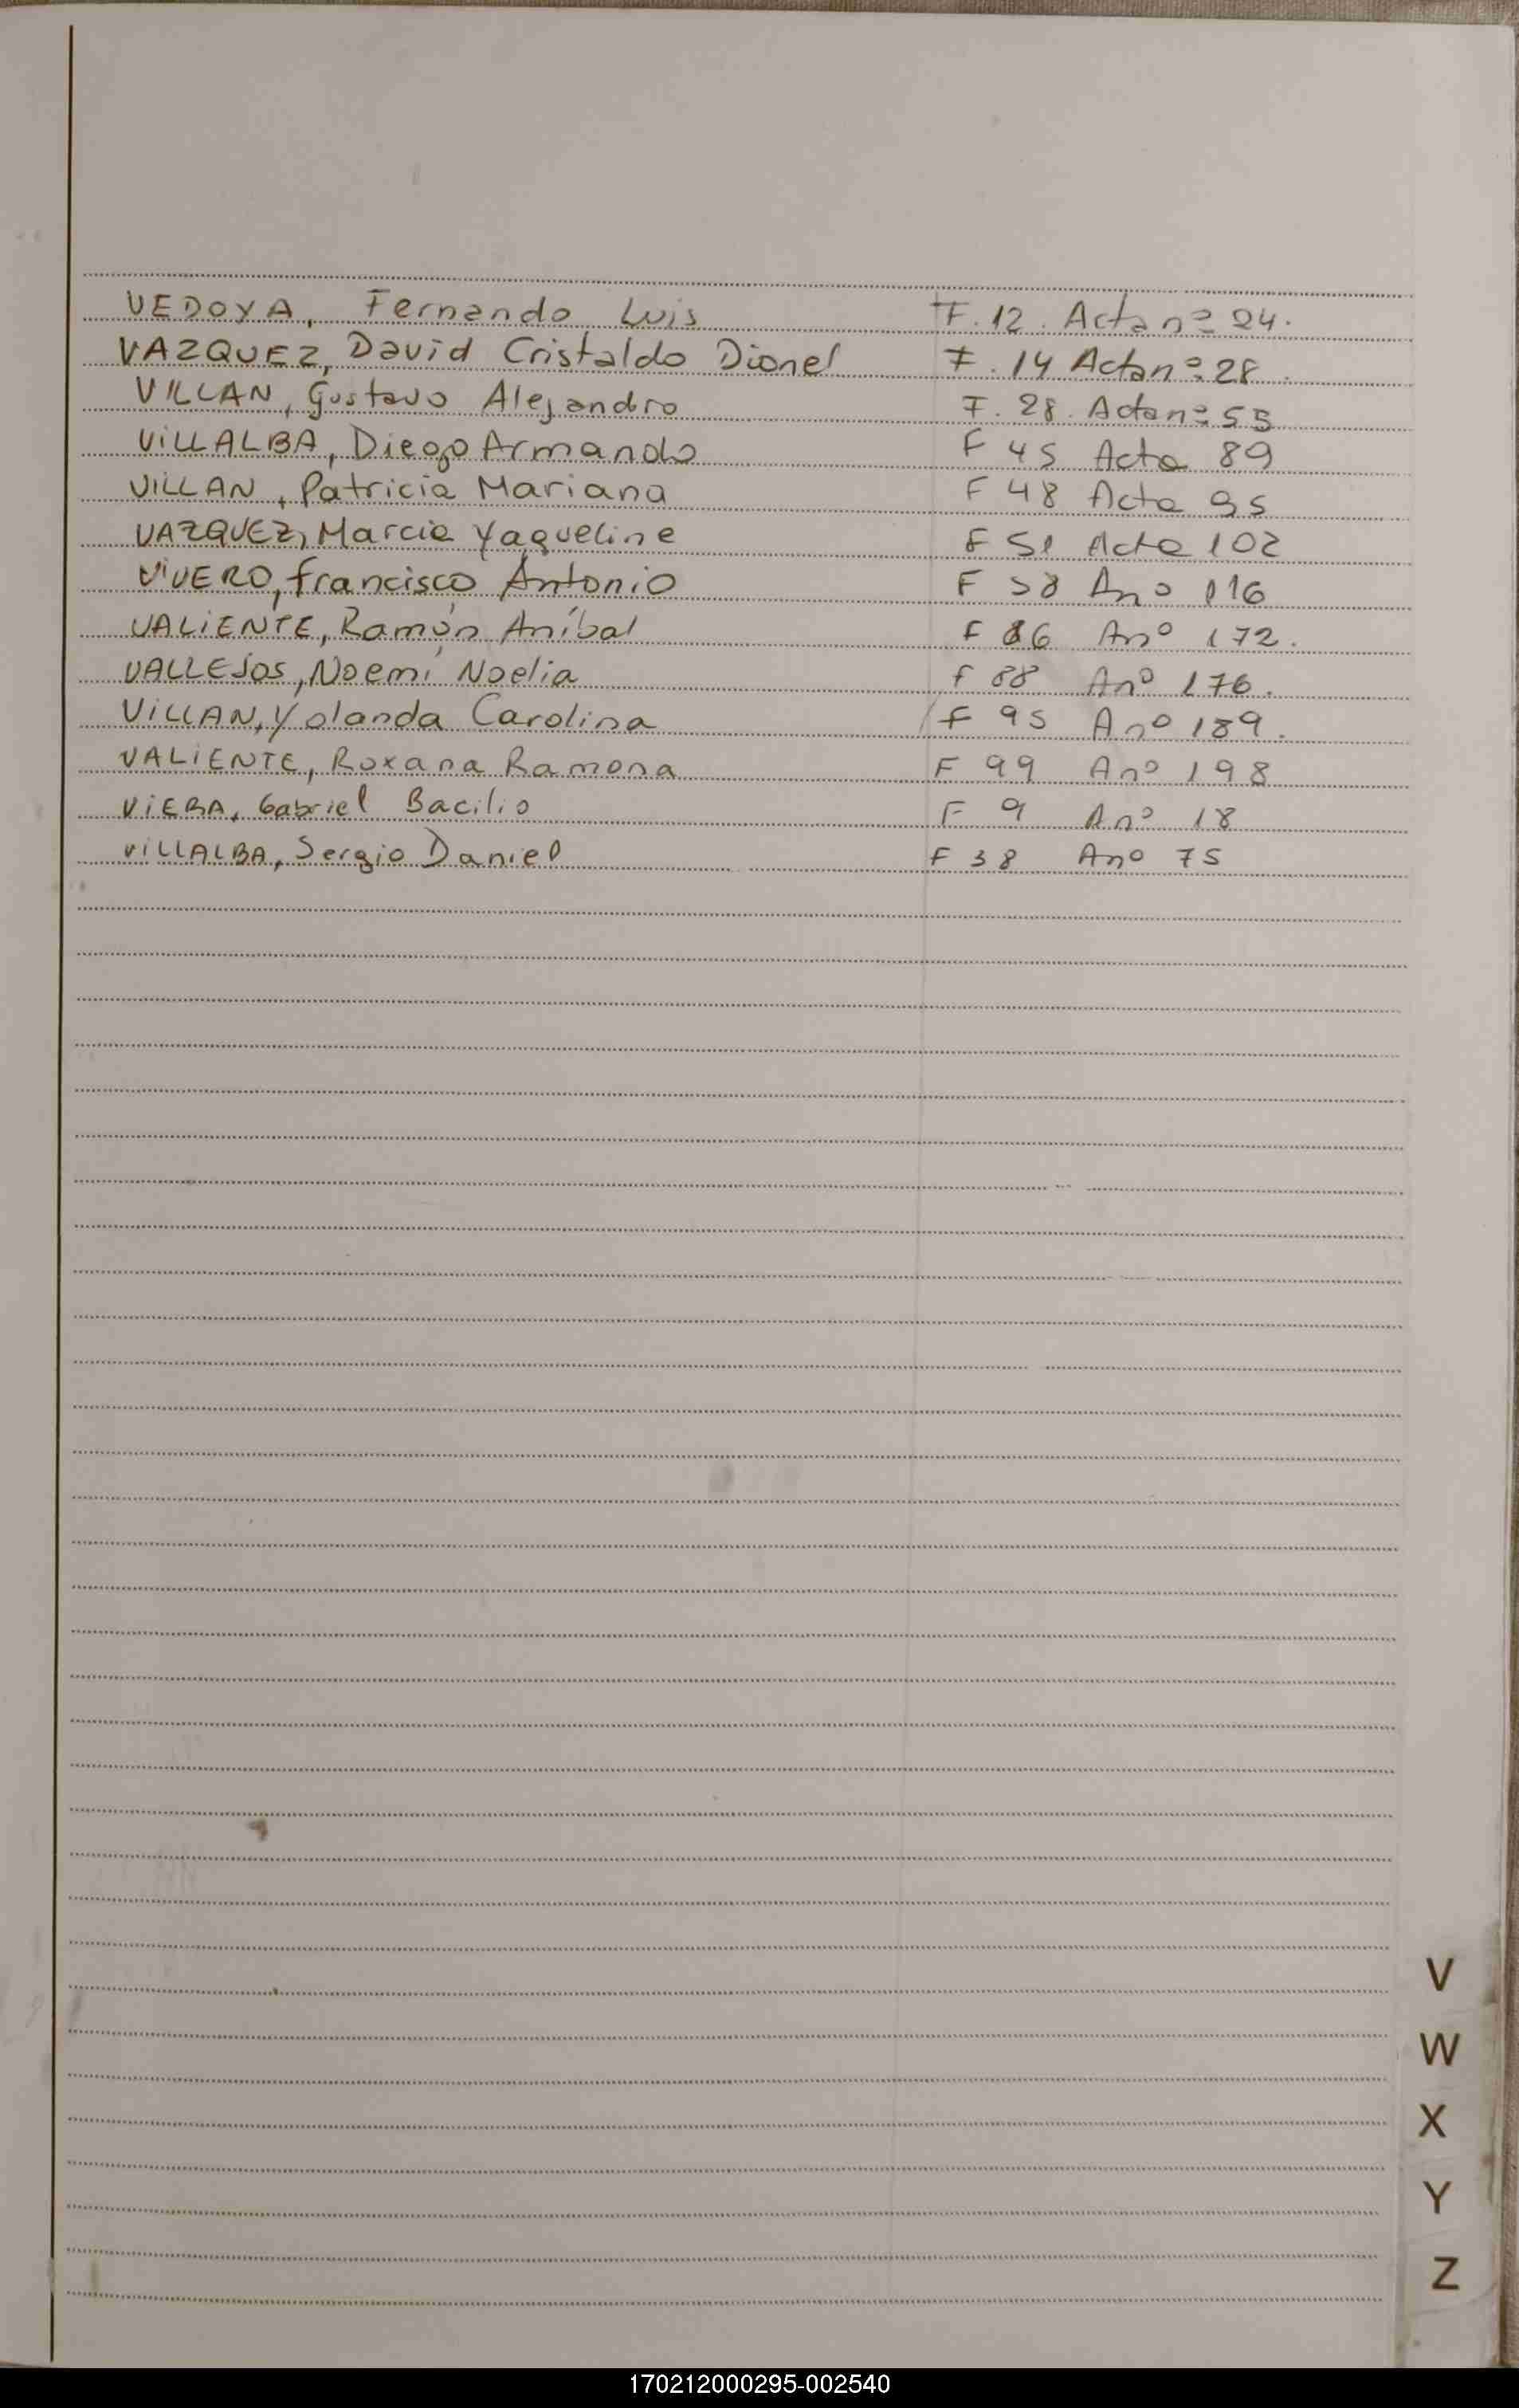 VEDOYA, Fernando Luis F. 12. Acta nº 24.
VAZQUEZ, David Cristaldo Dionel F. 14 Acta nº 28.
VILLAN, Gustavo Alejandro F. 28. Acta nº 55
ViLLALBA, Diego Armando F 45 Acta 89
VILLAN, Patricia Mariana F 48 Acta 95
VAZQUEZ, Marcia Yaqueline F 51 Acta 102
ViVERO, francisco Antonio F 58 Anº 116
VALiENTE, Ramón Aníbal F 86 Anº 172.
VALLEJOS, Noemí Noelia F 88 Anº 176.
ViLLAN, Yolanda Carolina F 95 Anº 189.
VALiENTE, Roxana Ramona F 99 Anº 198
ViERA, Gabriel Bacilio F 9 Anº 18
ViLLALBA, Sergio Daniel F 38 Anº 75
V
W
X
Y
Z
170212000295-002540